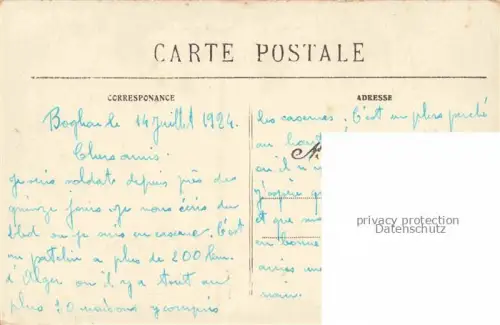 CARTE POSTALE
CORRESPONANCE
ADRESSE
Boghar le 14 juillet 1924.
Chers amis.
je suis soldat depuis près de
quinze jours je vous écris du
bled ou je suis en caserne. C'est
un patelin a plus de 200 km.
d'Alger ou il y a tout au
plus 20 maisons y compris
les casernes. C'est un plus perché
au haut
ou il n
j'espère q
et que
en bonne
privacy protection
Datenschutz